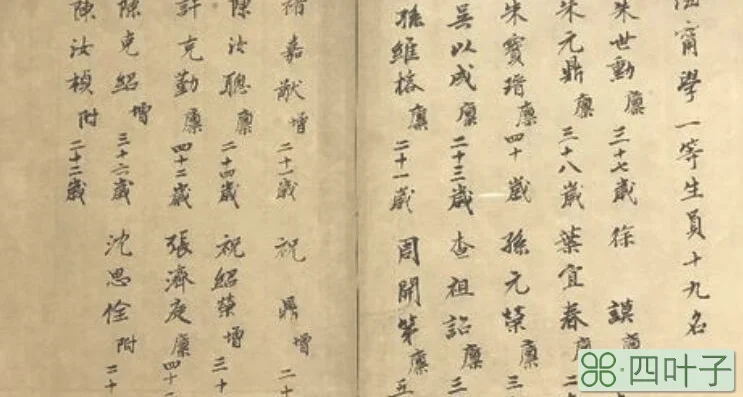 甯學一等生員十九名
朱世勳 廩 三十七歲 徐 謨 廩
朱元鼎 廩 三十八歲 葉宜春 廩 二
朱寶瑨 廩 四十歲 孫元榮 廩 三
吳以成 廩 二十三歲 查祖詒 廩 三
孫維榕 廩 二十一歲 周開第 廩 五
嘉猷 增 二十一歲 祝 鼎 增 二十
陳汝聰 廩 二十四歲 祝紹榮 增 三十
許克勤 廩 四十二歲 張濟庭 廩 四十
陳克紹 增 三十六歲 沈思佺 附 二十
陳汝楨 附 二十二歲
四叶子